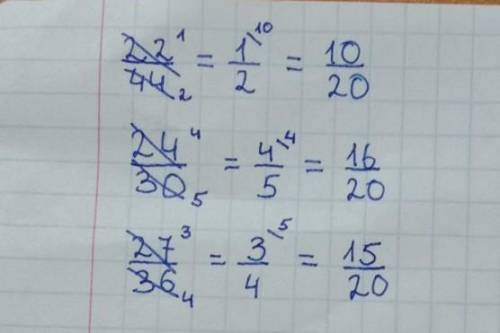 22/44 1 2 = 1/2 ⁄10 = 10/20
24/30 4 5 = 4/5 ⁄4 = 16/20
27/36 3 4 = 3/4 ⁄5 = 15/20